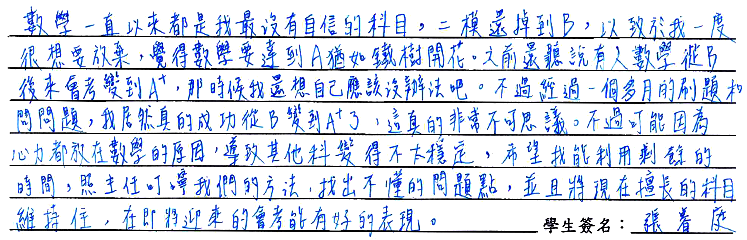 數學一直以來都是我最沒有自信的科目，二模還掉到B，以致於我一度
很想要放棄，覺得數學要達到A猶如鐵樹開花。之前還聽說有人數學從B
後來會考變到A⁺，那時候我還想自己應該沒辦法吧。不過經過一個多月的刷題和
問問題，我居然真的成功從B變到A⁺了，這真的非常不可思議。不過可能因為
心力都放在數學的原因，導致其他科變得不太穩定，希望我能利用剩餘的
時間，照主任叮嚀我們的方法，找出不懂的問題點，並且將現在擅長的科目
維持住，在即將迎來的會考能有好的表現。 學生簽名：張